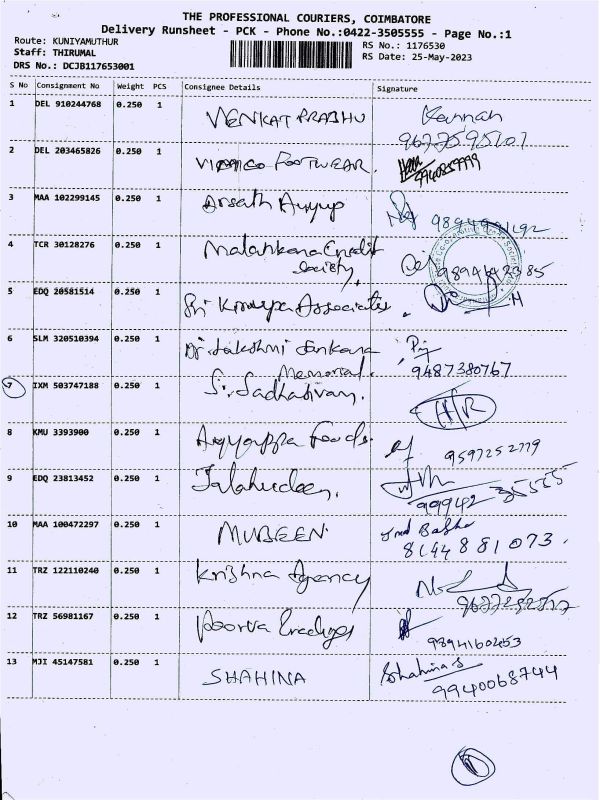 THE PROFESSIONAL COURIERS, COIMBATORE
Delivery Runsheet - PCK - Phone No.:0422-3505555 - Page No.:1
Route: KUNIYAMUTHUR
RS No.: 1176530
Staff: THIRUMAL
RS Date: 25-May-2023
DRS No.: DCJB117653001
S No Consignment No Weight PCS Consignee Details Signature
1 DEL 910244768 0.250 1 VENKAT PRABHU Kannan
2 DEL 203465826 0.250 1 FOOTWEAR.
9940859999
3 MAA 102299145 0.250 1 Arsath Ayyup
4 TCR 30128276 0.250 1 Malankara Credit
Society
5 EDQ 20581514 0.250 1 Sri Krupa Associates
6 SLM 320510394 0.250 1 Dr. Lakshmi Sankara
Memorial. 9487380767
7 IXM 503747188 0.250 1 Sr. Sadhasivam.
8 KMU 3393900 0.250 1 Ayyappa Foods. 9597252779
9 EDQ 23813452 0.250 1 Jalahudeen.
99942 35555
10 MAA 100472297 0.250 1 MUBEEN Basha
8144881073.
11 TRZ 122110240 0.250 1 Krishna Agency
12 TRZ 56981167 0.250 1 Poorva
9894160253
13 MJI 45147581 0.250 1 SHAHINA Shahina S
9940068744